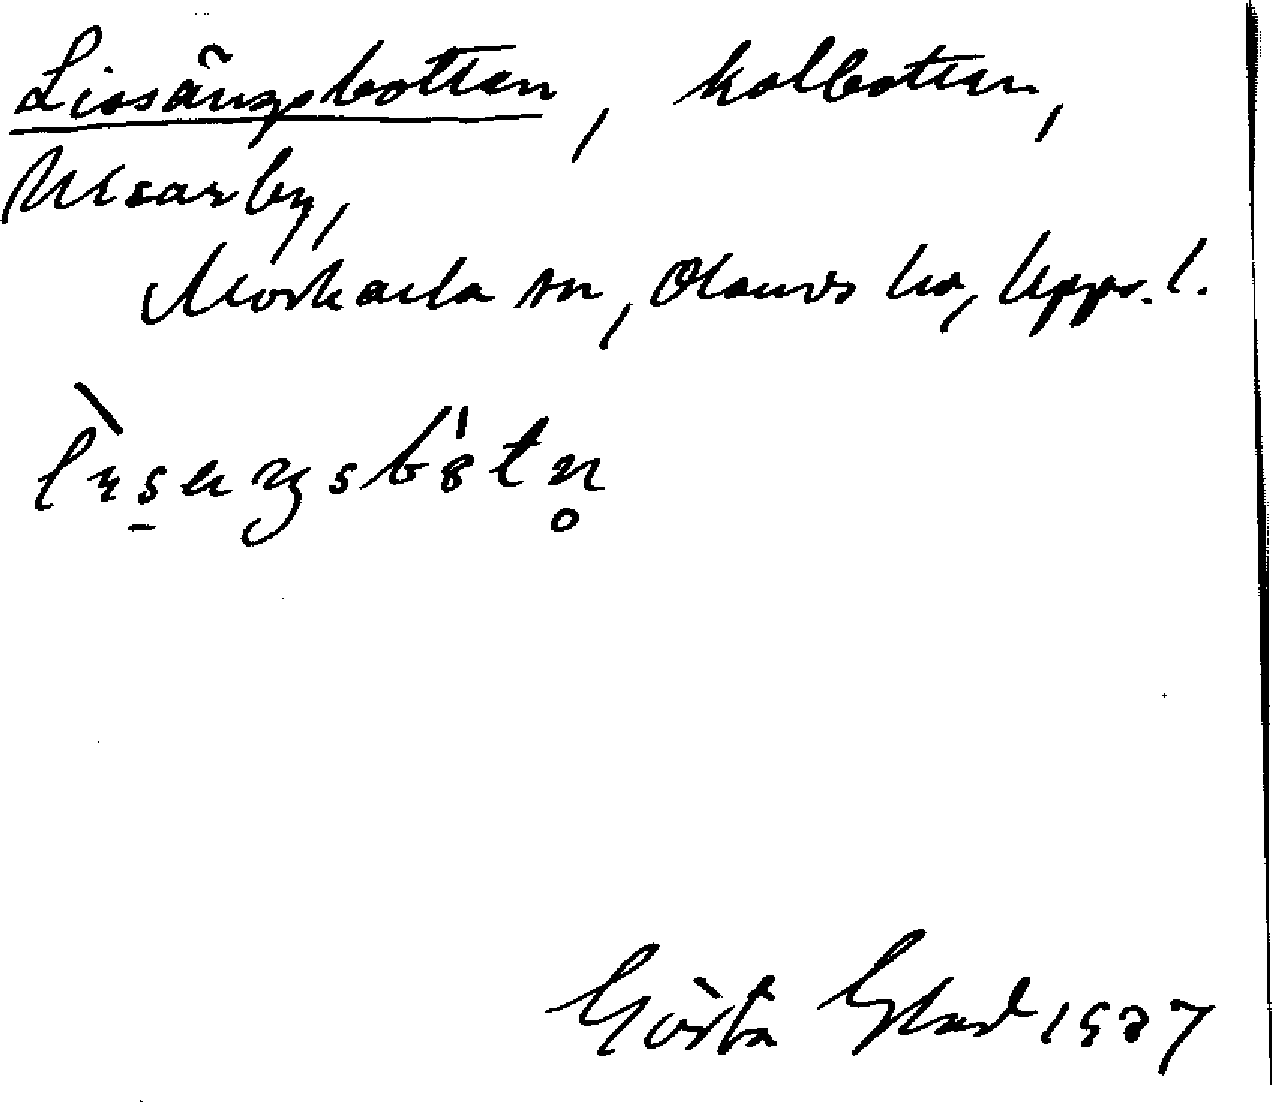 Lissängsbotten, kolbotten,
Ulsarby,
Morkarla sn, Olands hd, Upps. l.
Gösta Glad 1927